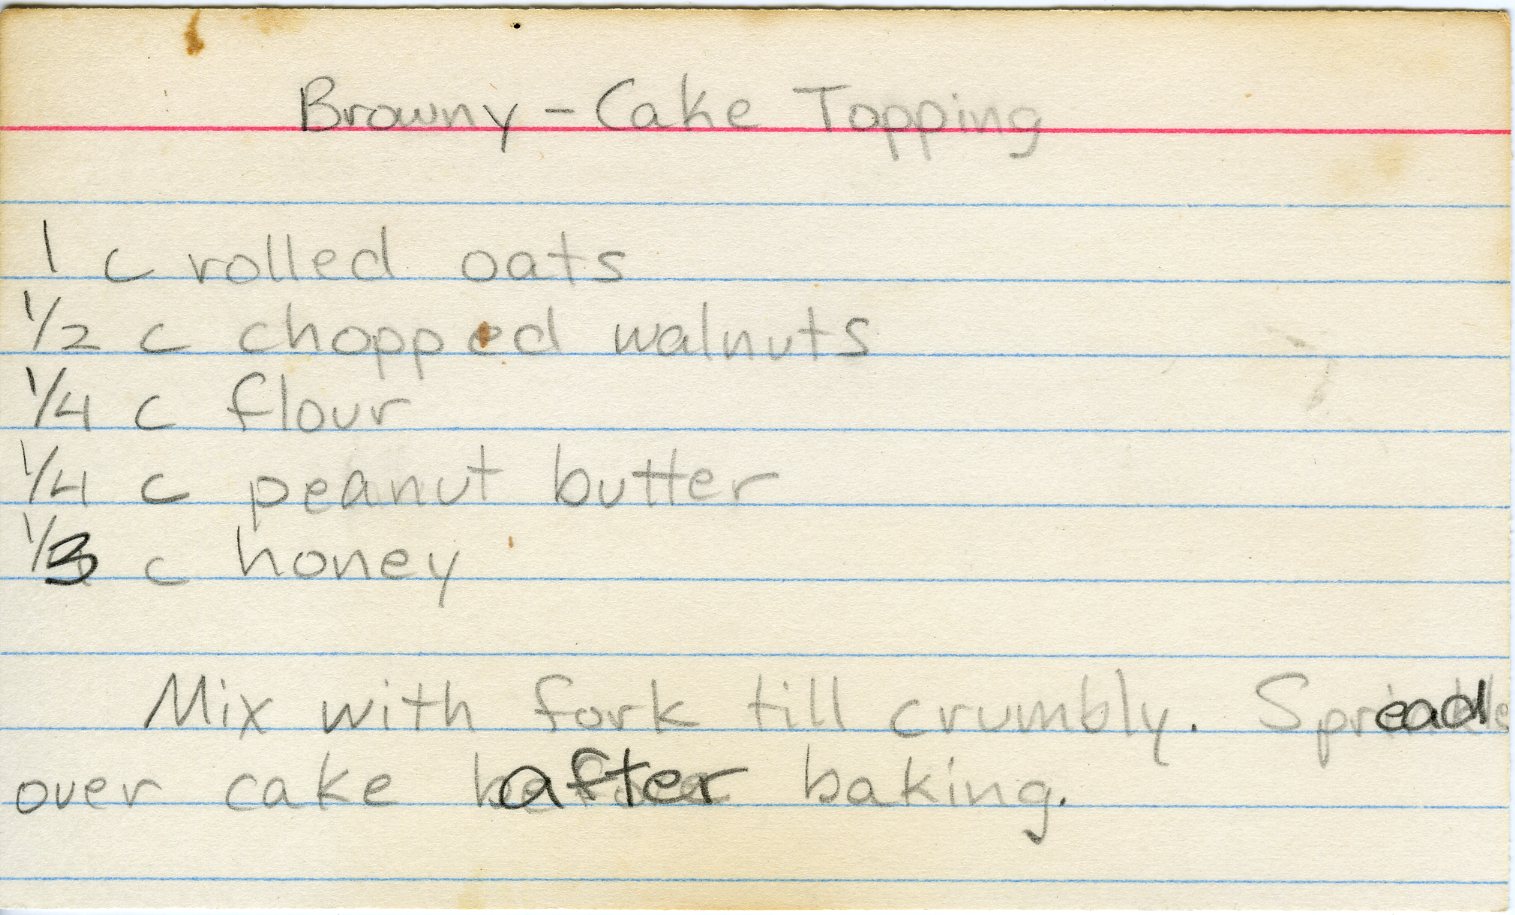 Browny - Cake Topping
1 c rolled oats
1/2 c chopped walnuts
1/4 c flour
1/4 c peanut butter
1/3 c honey
Mix with fork till crumbly. Spread
over cake after baking.